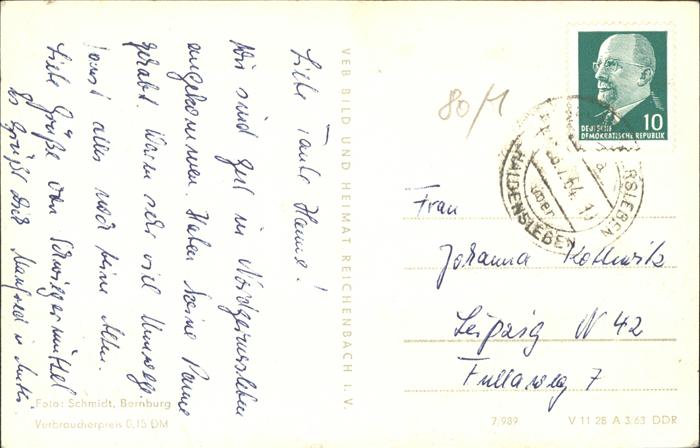 Liebe Tante Hanne!
Wir sind gut in Nordgermersleben
angekommen. Haben keine Panne
gehabt. Waren sehr viel Umwege.
sonst alles
Liebe Grüße von
Es grüßt Dich Manfred u.
VEB BILD UND HEIMAT REICHENBACH I. V.
Foto: Schmidt, Bernburg
Verbraucherpreis 0,15 DM
80/1
DEUTSCHE
DEMOKRATISCHE REPUBLIK
10
über
HALDENSLEBEN
Frau
Johanna Kollwitz
Leipzig N 42
Fullaweg 7
7/989
V 11 28 A 3/63 DDR